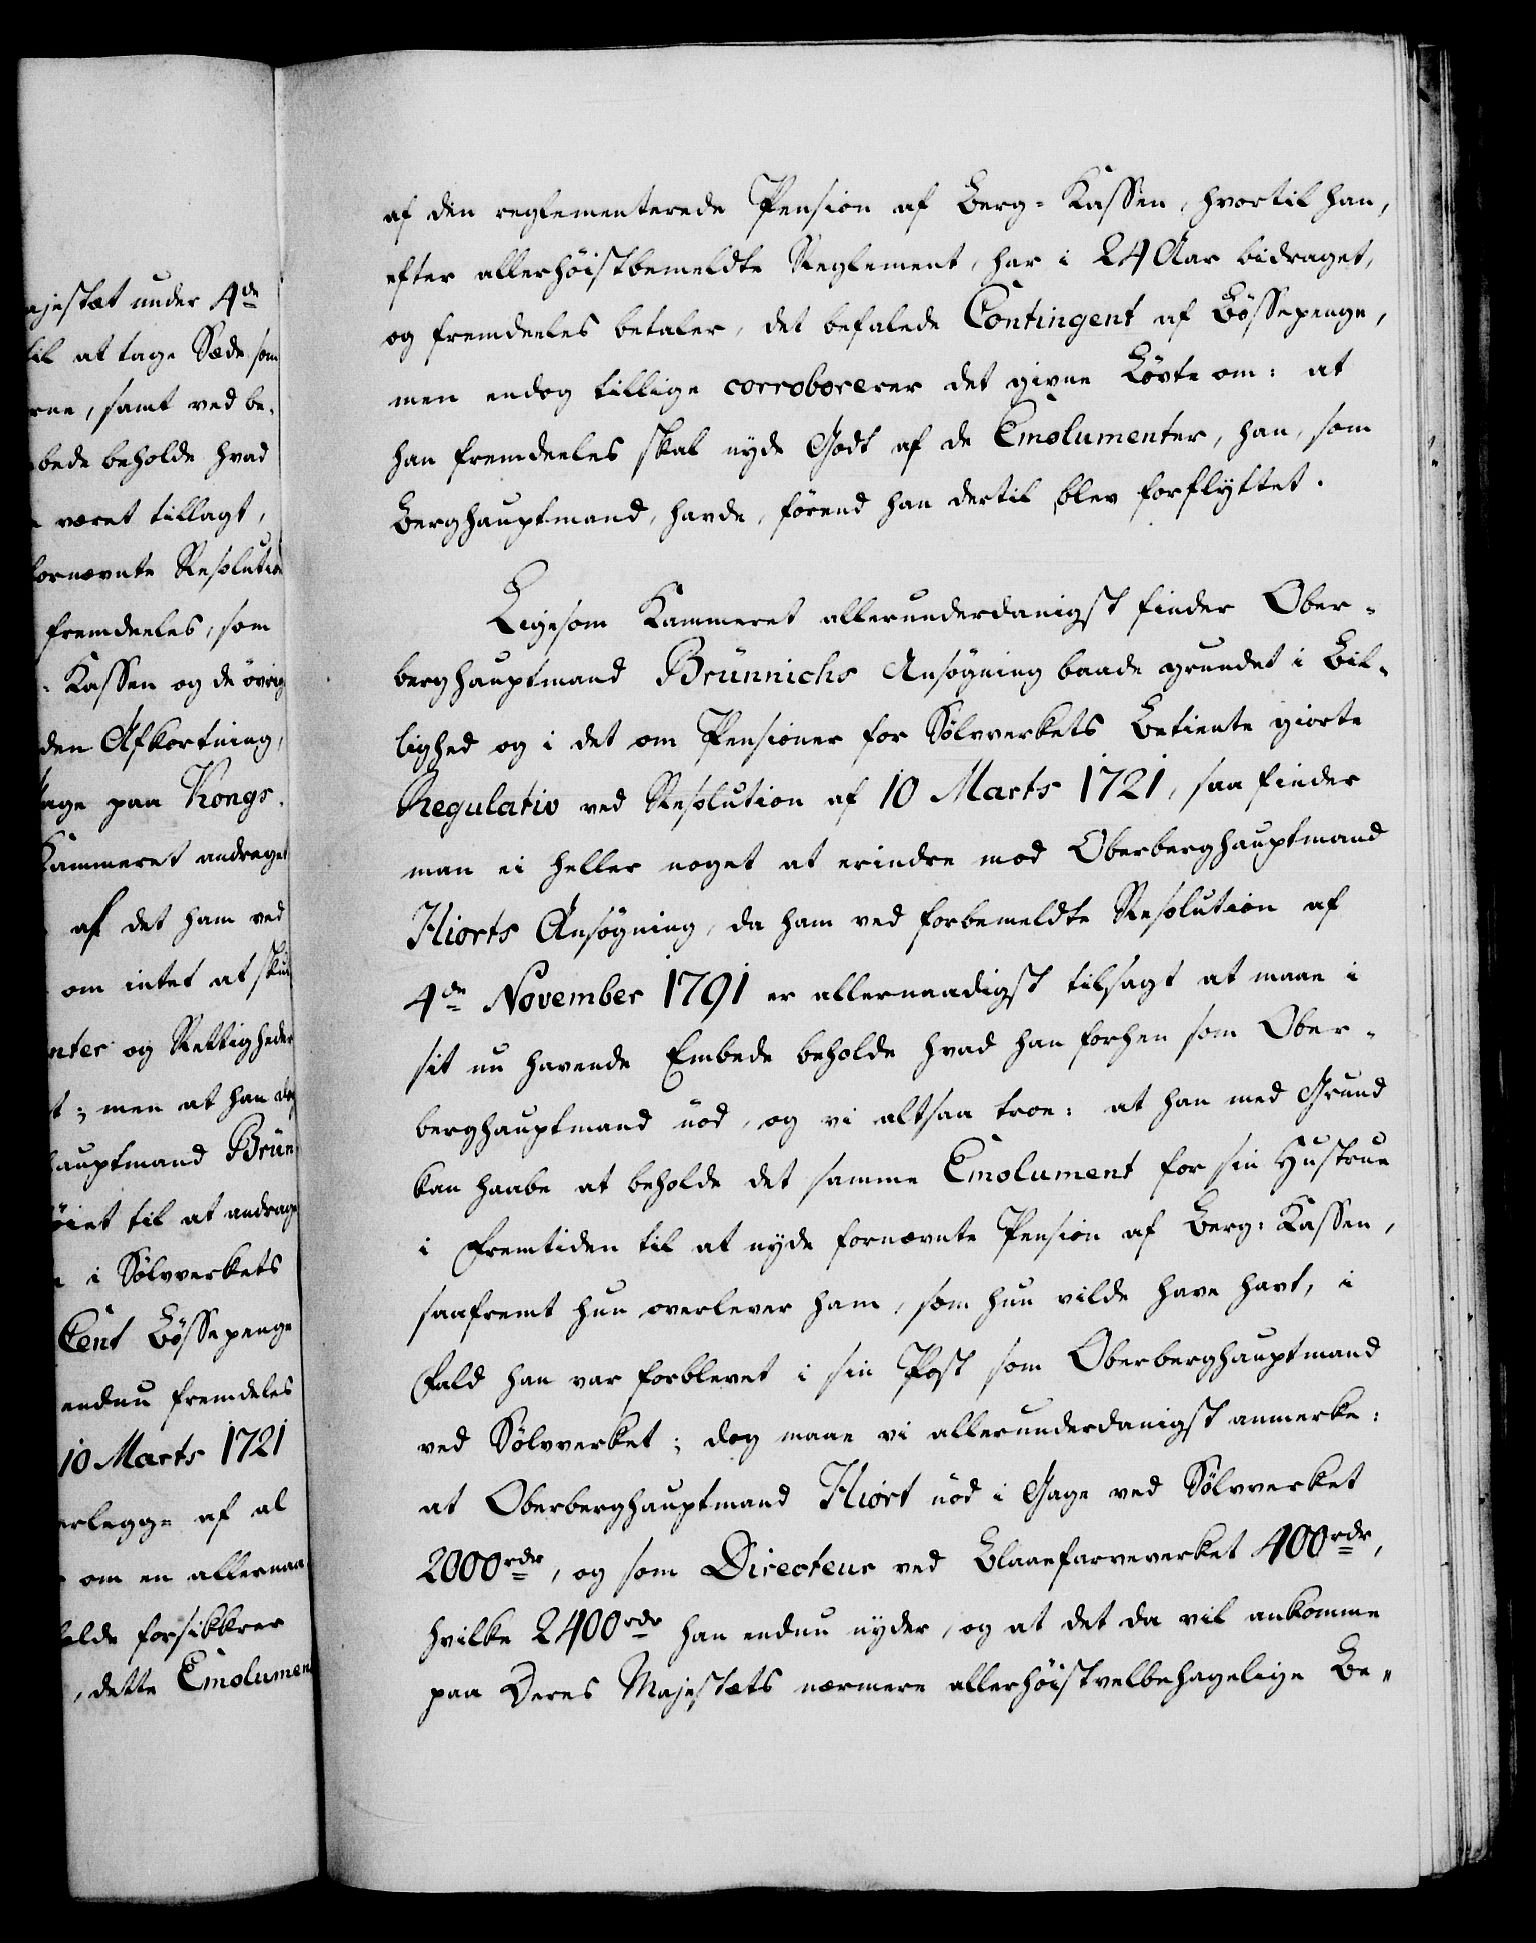 ajestæt under 4de
til at tage Sæde som
rne, samt ved be-
bede beholde hvad
været tillagt,
fornævnte Resolution
fremdeeles, som
- Kassen og de øvrig
den Afkortning,
age paa Kongs-
Kammeret andraget
af det ham ved
om intet at skul
nter og Rettigheder
t; men at han dog
hauptmand Brün-
øiet til at andrage
i Sølvverkets
Cent Bössepenge
endnu fremdeles
10 Marts 1721
erlegg- af al
om en allernaa
helde forsikkrer
, dette Emolumen
af den reglementerede Pension af Berg-Kassen, hvortil han,
efter allerhöistbemeldte Reglement, har i 24 Aar bidraget,
og fremdeeles betaler, det befalede Contingent af Bössepenge,
men endog tillige corroborerer det givne Løvte om: at
han fremdeeles skal nyde Godt af de Emolumenter, han, som
Berghauptmand, havde, förend han dertil blev forflyttet.
Ligesom Kammeret allerunderdanigst finder Ober-
berghauptmand Brünnichs Ansøgning baade grundet i Bil-
lighed og i det om Pensioner for Sølvverkets Betiente giorte
Regulativ ved Resolution af 10 Marts 1721, saa finder
man ei heller noget at erindre mod Oberberghauptmand
Hiorts Ansøgning, da ham ved forbemeldte Resolution af
4de November 1791 er allernaadigst tilsagt at maae i
sit nu havende Embede beholde hvad han forhen som Ober-
berghauptmand nöd, og vi altsaa troe: at han med Grund
kan haabe at beholde det samme Emolument for sin Hustrue
i Fremtiden til at nyde fornævnte Pension af Berg-Kassen,
saafremt hun overlever ham, som hun vilde have havt, i
Fald han var forblevet i sin Post som Oberberghauptmand
ved Sølvverket; dog maae vi allerunderdanigst anmerke:
at Oberberghauptmand Hiort nöd i Gage ved Sølvverket
2000 rdr, og som Directeur ved Blaaefarveverket 400 rdr,
hvilke 2400 rdr han endnu nyder, og at det da vil ankomme
paa Deres Majestæts nærmere allerhöistvelbehagelige Be-